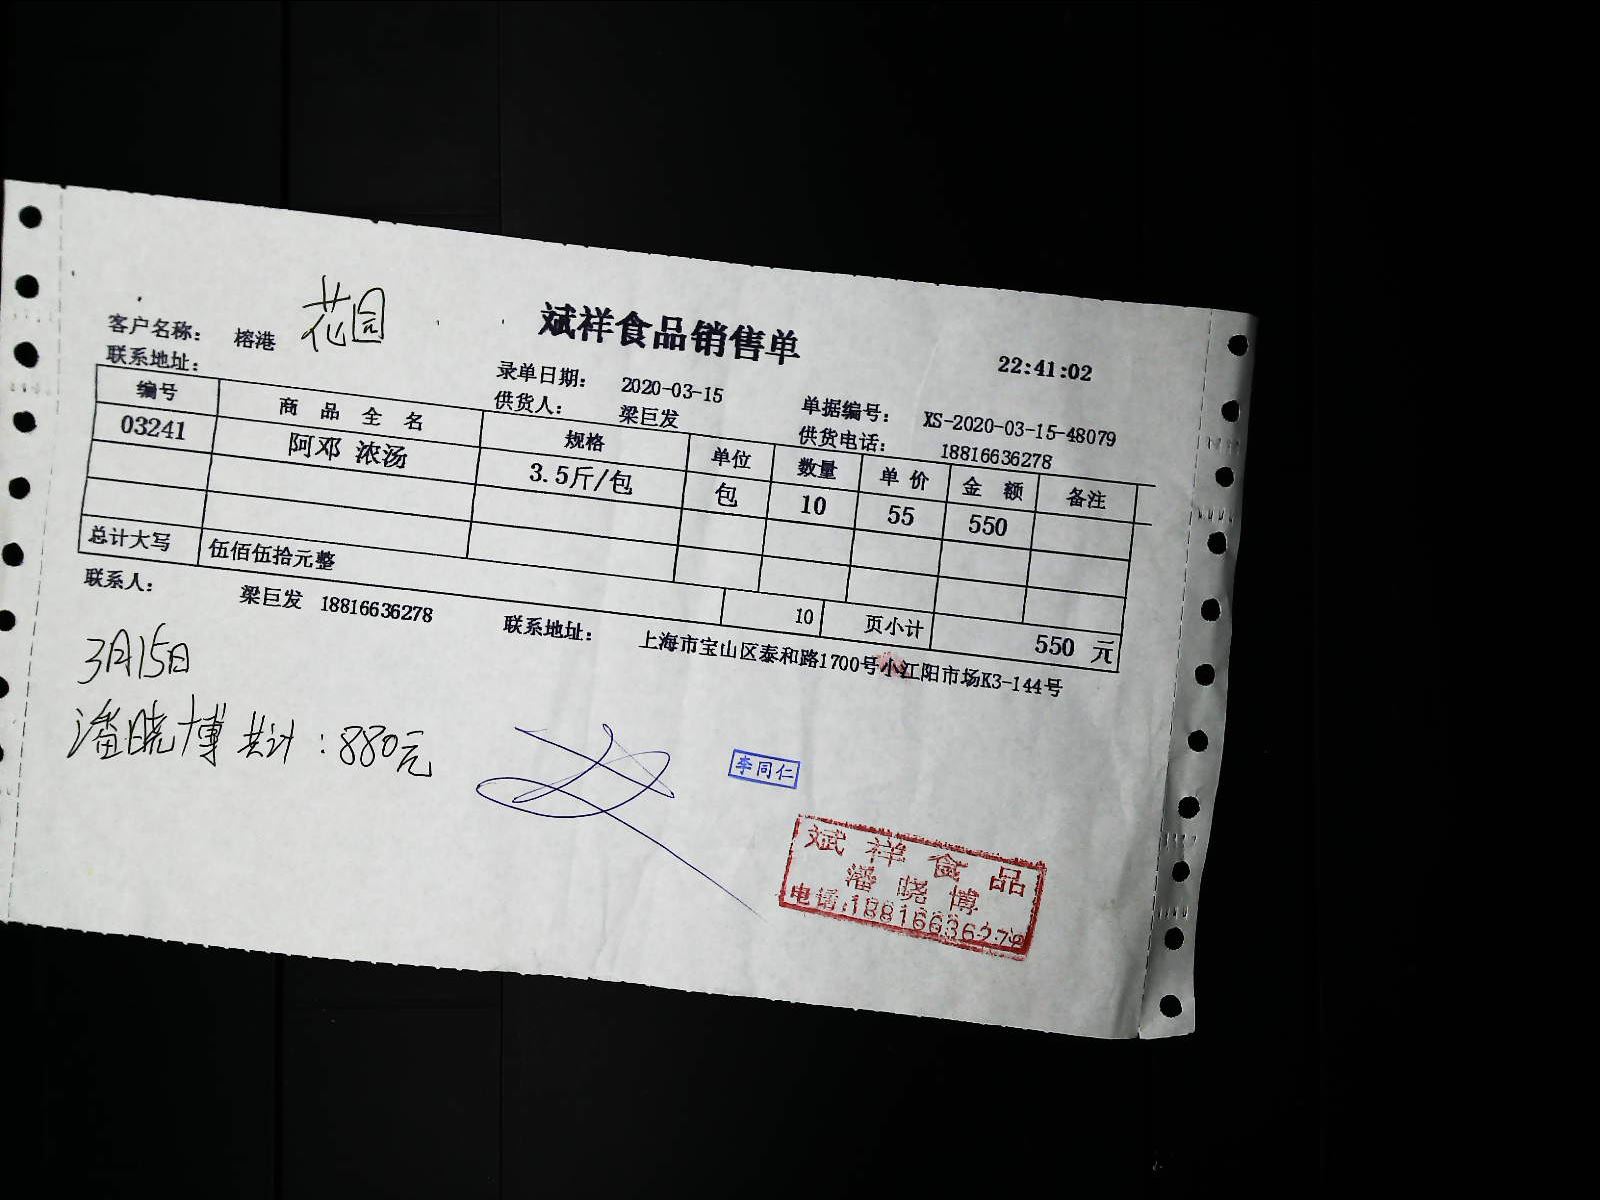 斌祥食品销售单
22:41:02
客户名称： 榕港 花园
录单日期： 2020-03-15 单据编号： XS-2020-03-15-48079
联系地址： 供货人： 梁巨发 供货电话： 18816636278
编号 商品全名 规格 单位 数量 单价 金额 备注
03241 阿邓 浓汤 3.5斤/包 包 10 55 550
总计大写 伍佰伍拾元整 10 页小计 550 元
联系人： 梁巨发 18816636278 联系地址： 上海市宝山区泰和路1700号小江阳市场K3-144号
3月15日
潘晓博 共计：880元
李同仁
斌祥食品
潘晓博
电话:18816636278